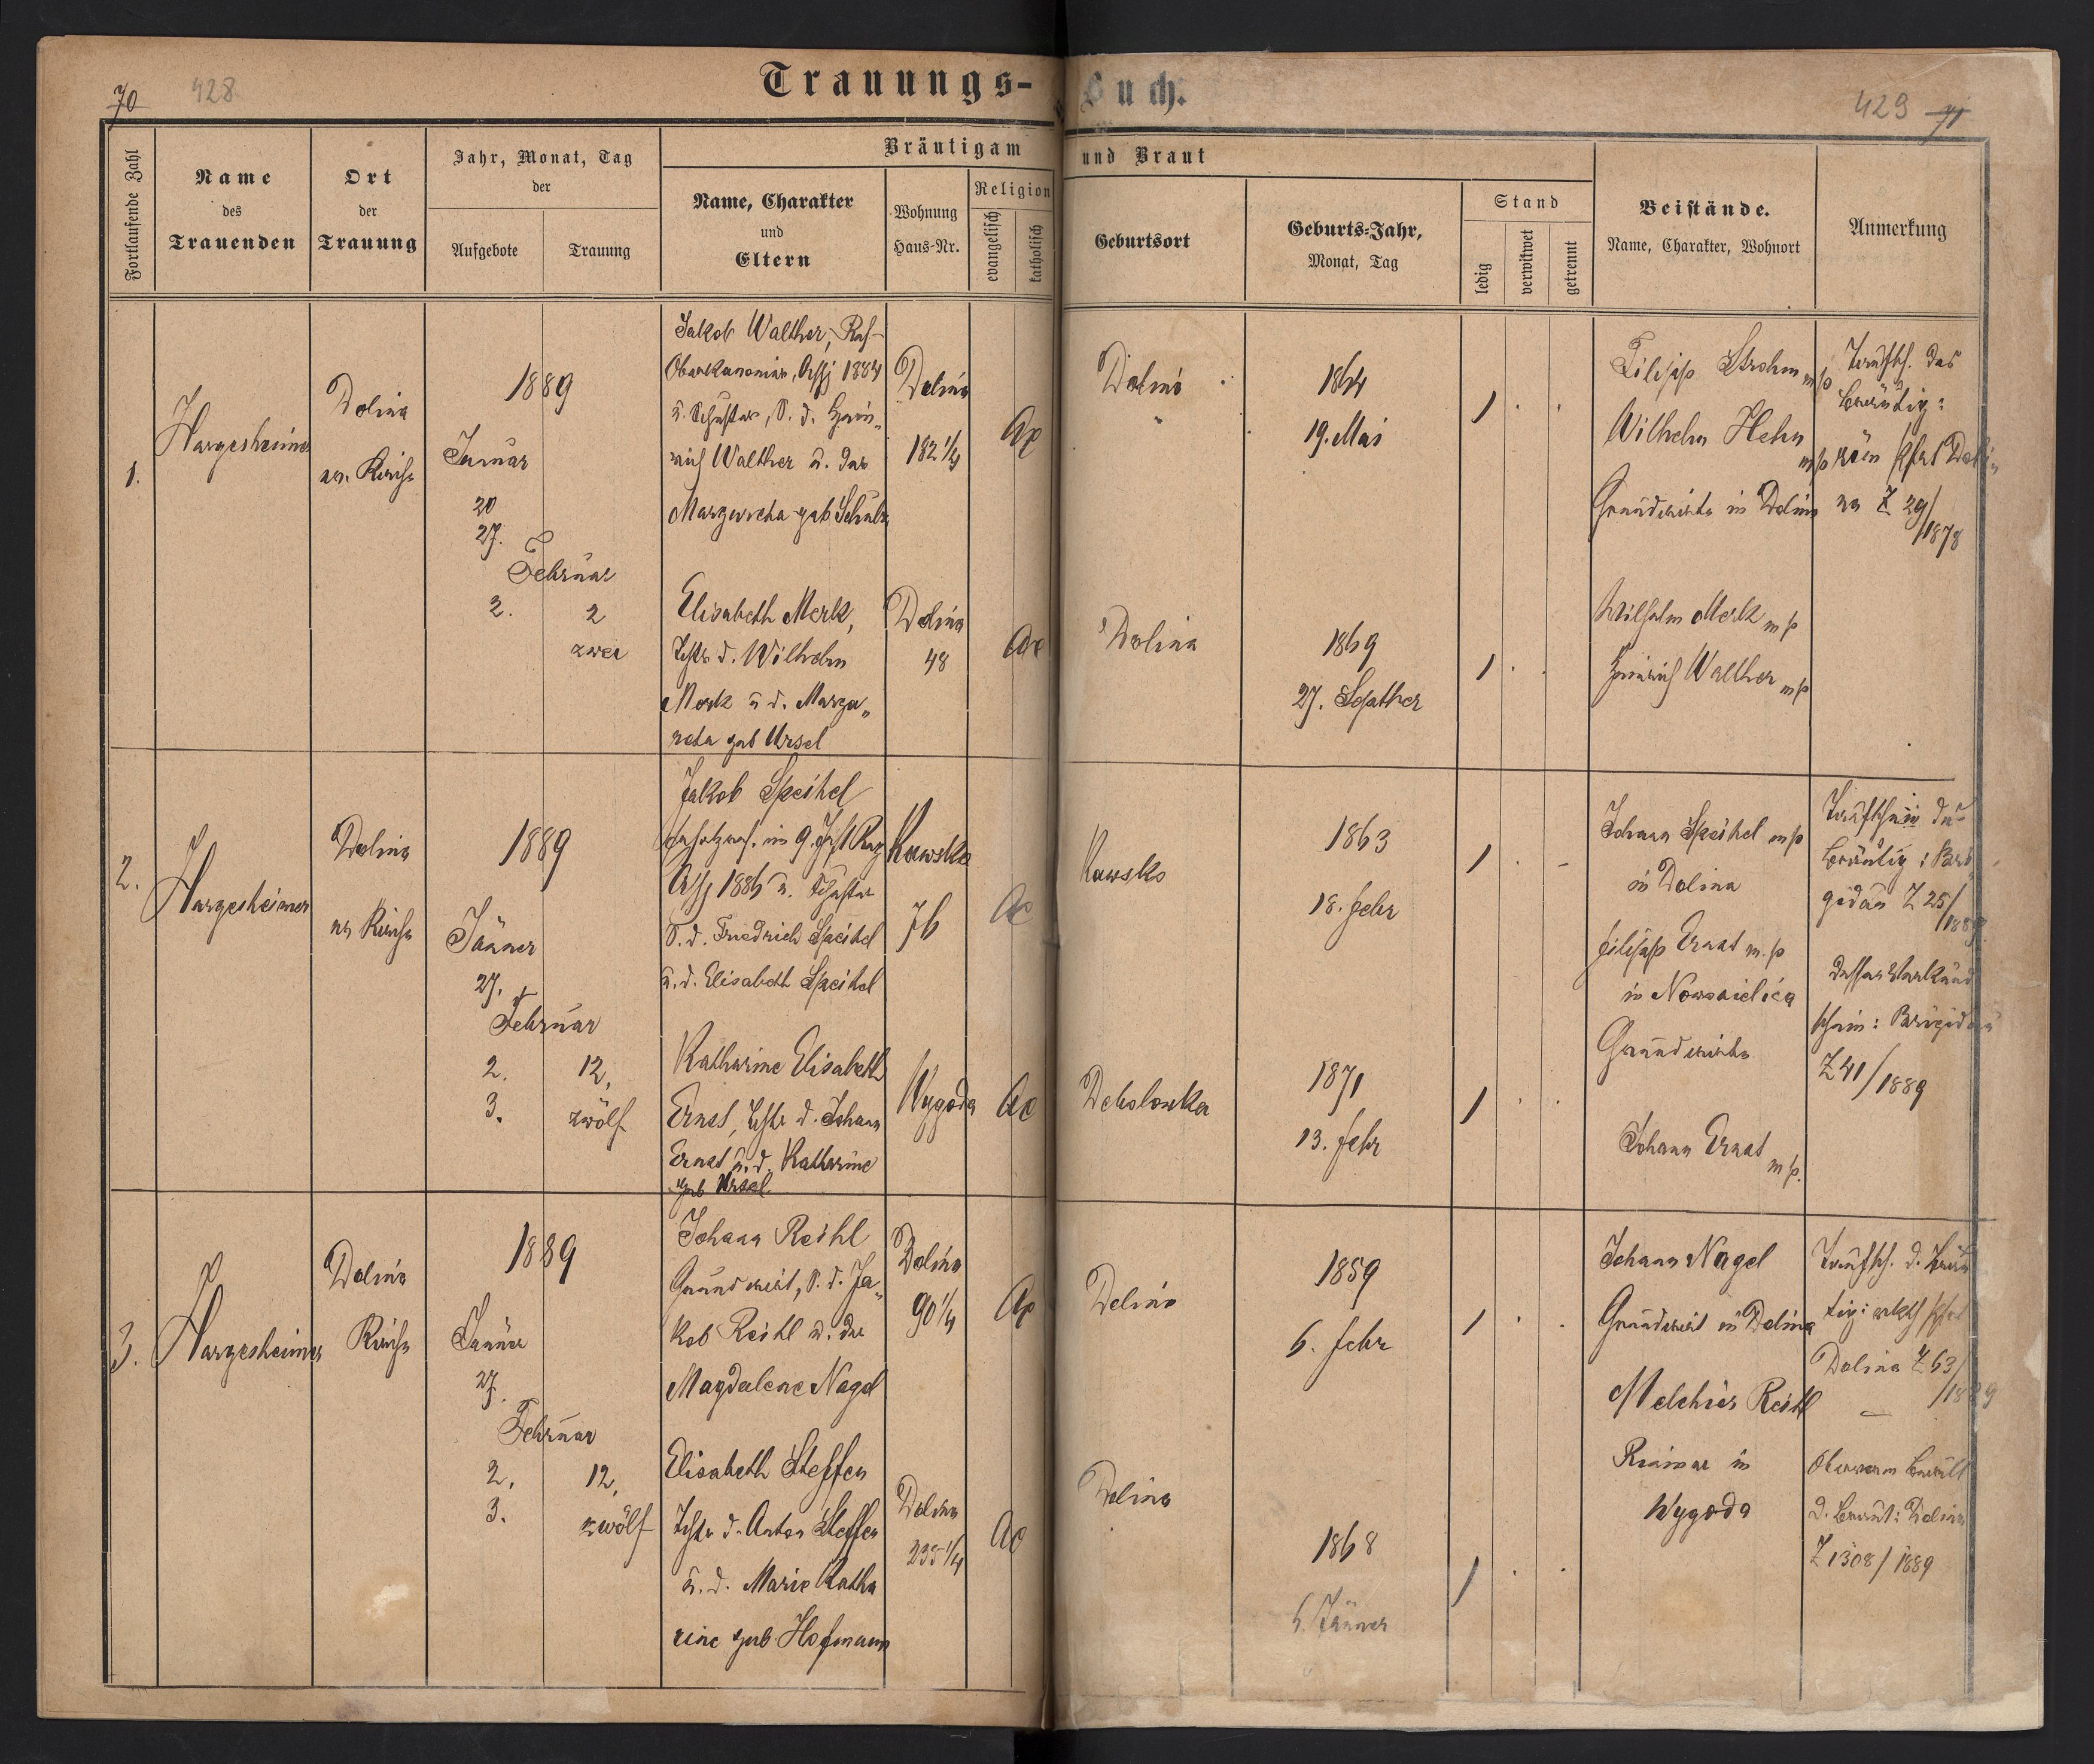 70 428
Trauungs-Buch.
429 71
Fortlaufende Zahl
Name
des
Trauenden
Ort
der
Trauung
Jahr, Monat, Tag
der
Aufgebote
Trauung
Bräutigam und Braut
Name, Charakter
und
Eltern
Wohnung
Haus-Nr.
Religion
evangelisch
katholisch
Geburtsort
Geburts-Jahr,
Monat, Tag
Stand
ledig
verwitwet
getrennt
Beistände.
Name, Charakter, Wohnort
Anmerkung
1.
Hargesheimer
Dolina
ev. Kirche
1889
Januar
20
27.
Februar
2.
2
zwei
Jakob Walther, Res-
1884
u. Schuster, S. d. Hein-
rich Walther u. der
Margareta geb Schulz
Dolina
182 1/4
AC
Dolina
1864
19. Mai
1
Filipp Strohm m/p
Wilhelm Hehn
m/p
Grundwirte in Dolina
Taufsch. des
Bräutig:
Dolina
Z 29/
1878
Elisabeth Merk,
Tcht. d. Wilhelm
Merk u d. Marga-
reta geb Ursel
Dolina
48
AC
Dolina
1869
27. Septber
1
Wilhelm Merk m/p
Heinrich Walther m/p
2.
Hargesheimer
Dolina
ev Kirche
1889
Jänner
27.
Februar
2.
3.
12.
zwölf
Jakob Speihel
im 9.
1886 u. Schuster
S. d. Friedrich Speihel
u. d. Elisabeth Speihel
Kawsko
76
AC
Kawsko
1863
18. Febr
1
Johann Speihel m/p
in Dolina
Filipp Ernst m.p
in Nowosielica
Grundwirte
Taufschein des
Bräutig: Bri-
gidau Z 25/
1889
dessen Verkünd
schein: Brigidau
Z 41/1889
Katharine Elisabeth
Ernst, Tcht. d. Johann
Ernst u. d. Katharine
geb Ursel
Wygoda
AC
Debolowka
1871
13. Febr
1
Johann Ernst
m/p.
3.
Hargesheimer
Dolina
Kirche
1889
Jänner
27.
Februar
2.
3.
12.
zwölf
Johann Reihl
Grundwirt, S. d. Ja-
kob Reihl u. der
Magdalene Nagel
Dolina
90 1/4
AC
Dolina
1859
6. Febr
1
Johann Nagel
Grundwirt in Dolina
Melchior Reihl
Riemer in
Wygoda
Taufsch. d. Bräu
tig:
Dolina Z 63/
1889
d. Braut: Dolina
Z 1308/1889
Elisabeth Steffen
Tcht. d. Anton Steffen
u. d. Marie Katha
rine geb. Hofmann
Dolina
235 1/4
AC
Dolina
1868
6. Jänner
1